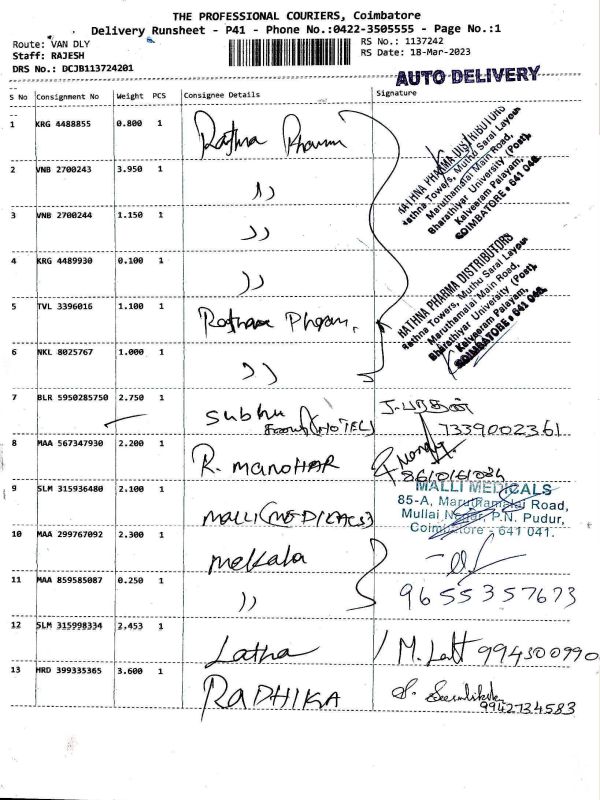 THE PROFESSIONAL COURIERS, Coimbatore
Delivery Runsheet - P41 - Phone No.:0422-3505555 - Page No.:1
Route: VAN DLY
Staff: RAJESH
DRS No.: DCJB113724201
RS No.: 1137242
RS Date: 18-Mar-2023
AUTO DELIVERY
S No Consignment No Weight PCS Consignee Details Signature
1 KRG 4488855 0.800 1 Rathna Pharm
RATHNA PHARMA DISTRIBUTORS
Rathna Towers, Muthu Sarai Layout
Maruthamalai Main Road,
Bharathiyar University (Post),
Kalveeram Palayam,
COIMBATORE - 641 046.
2 VNB 2700243 3.950 1 ))
3 VNB 2700244 1.150 1 ))
4 KRG 4489930 0.100 1 ))
RATHNA PHARMA DISTRIBUTORS
Rathna Towers, Muthu Sarai Layout
Maruthamalai Main Road,
Bharathiyar University (Post),
Kalveeram Palayam,
COIMBATORE - 641 046.
5 TVL 3396016 1.100 1 Rathna Pharm.
6 NKL 8025767 1.000 1 ))
7 BLR 5950285750 2.750 1 Subhu (HOTEL) J. பரதன் 7339002361
8 MAA 567347930 2.200 1 R. manoHAR 8610161084
9 SLM 315936480 2.100 1 MALLI (MEDICALS)
MALLI MEDICALS
85-A, Maruthamalai Road,
Mullai Nagar, P.N. Pudur,
Coimbatore - 641 041.
10 MAA 299767092 2.300 1 mekala
11 MAA 859585087 0.250 1 )) 9655357673
12 SLM 315998334 2.453 1 Latha M. Latt 994300990
13 HRD 399335365 3.600 1 RADHIKA 9942734583